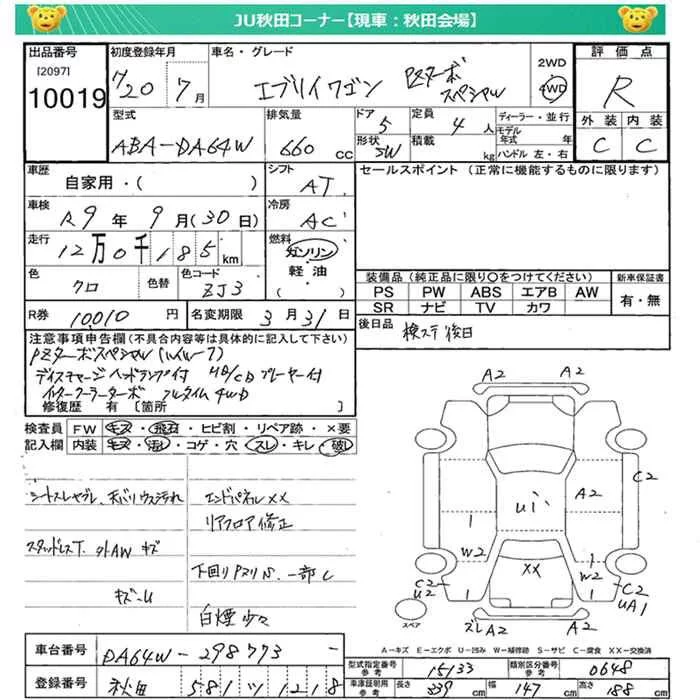 JU秋田コーナー【現車：秋田会場】
出品番号
[2097]
10019
初度登録年月
H20 7月
車名・グレード
エブリイワゴン PZターボスペシャル
2WD
4WD
評価点
R
外装 内装
C C
型式
ABA-DA64W
排気量
660 cc
ドア
5
形状
5W
定員
4人
積載
kg
ディーラー・並行
モデル年式 年
ハンドル 左・右
車歴
自家用・( )
シフト
AT
車検
R9年9月(30日)
冷房
AC
走行
12万0千185km
燃料
ガソリン
軽油
( )
色
クロ
色替
色コード
ZJ3
R券
10,010円
名変期限
3月31日
セールスポイント (正常に機能するものに限ります)
装備品(純正品に限り○をつけてください)
PS PW ABS エアB AW
SR ナビ TV カワ
新車保証書
有・無
後日品
検ステ後日
注意事項申告欄(不具合内容等は具体的に記入して下さい)
PZターボスペシャル(ハイルーフ)
ディスチャージヘッドランプ付 MD/CDプレーヤー付
インタークーラーターボ フルタイム4WD
修復歴 有 [箇所 ]
検査員記入欄
FW キズ・飛石・ヒビ割・リペア跡・×要
内装 キズ・汚れ・コゲ・穴・スレ・キレ・破し
シートスレヤブレ、天バリウス汚れ
エンドパネルXX
リアフロア修正
スタッドレスT. 外AW キズ
下回りPヌリS. 一部C
キズ・U
白煙少々
A2 A2
C2
A2
Uハ
1
W2
XX
1
W2
C2
U2
C2
UA1
1 1
ズレA2 A2
スペア
A-キズ E-エクボ U-凹み W-補修跡 S-サビ C-腐食 XX-交換済
車台番号
DA64W-298773-
登録番号
秋田 581 ツ 1218
型式指定番号
参考
15133
類別区分番号
参考
0648
車庫証明用
参考
長さ 339cm
幅 147cm
高さ 188cm